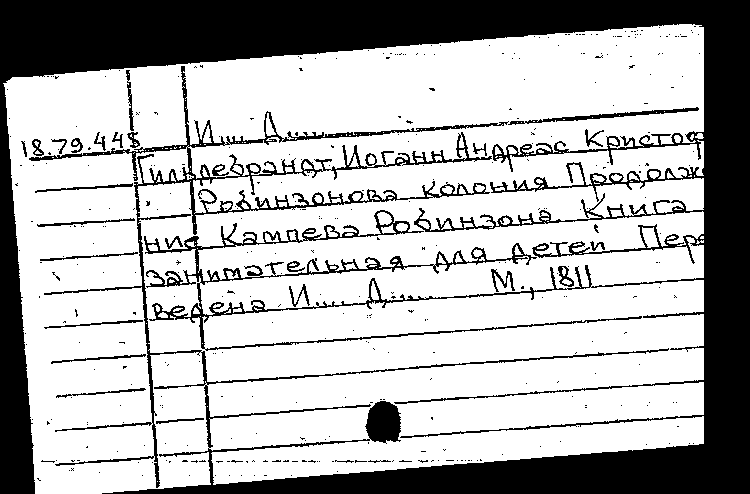 И.... Д......
18.79.445
Гильдебрандт, Иоганн Андреас Кристоф
Робинзонова колония Продолже
ние Кампева Робинзона Книга
занимательная для детей Пере
ведена И.... Д...... М., 1811